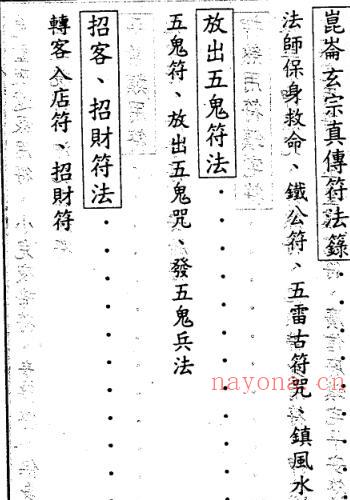 崑崙玄宗真傳符法錄．．．
法師保身救命、鐵公符、五雷古符咒、鎮風水
放出五鬼符法．．．．．．．．
五鬼符、放出五鬼咒、發五鬼兵法
招客、招財符法．．．．．．．．
轉客入店符、招財符
nayona.cn